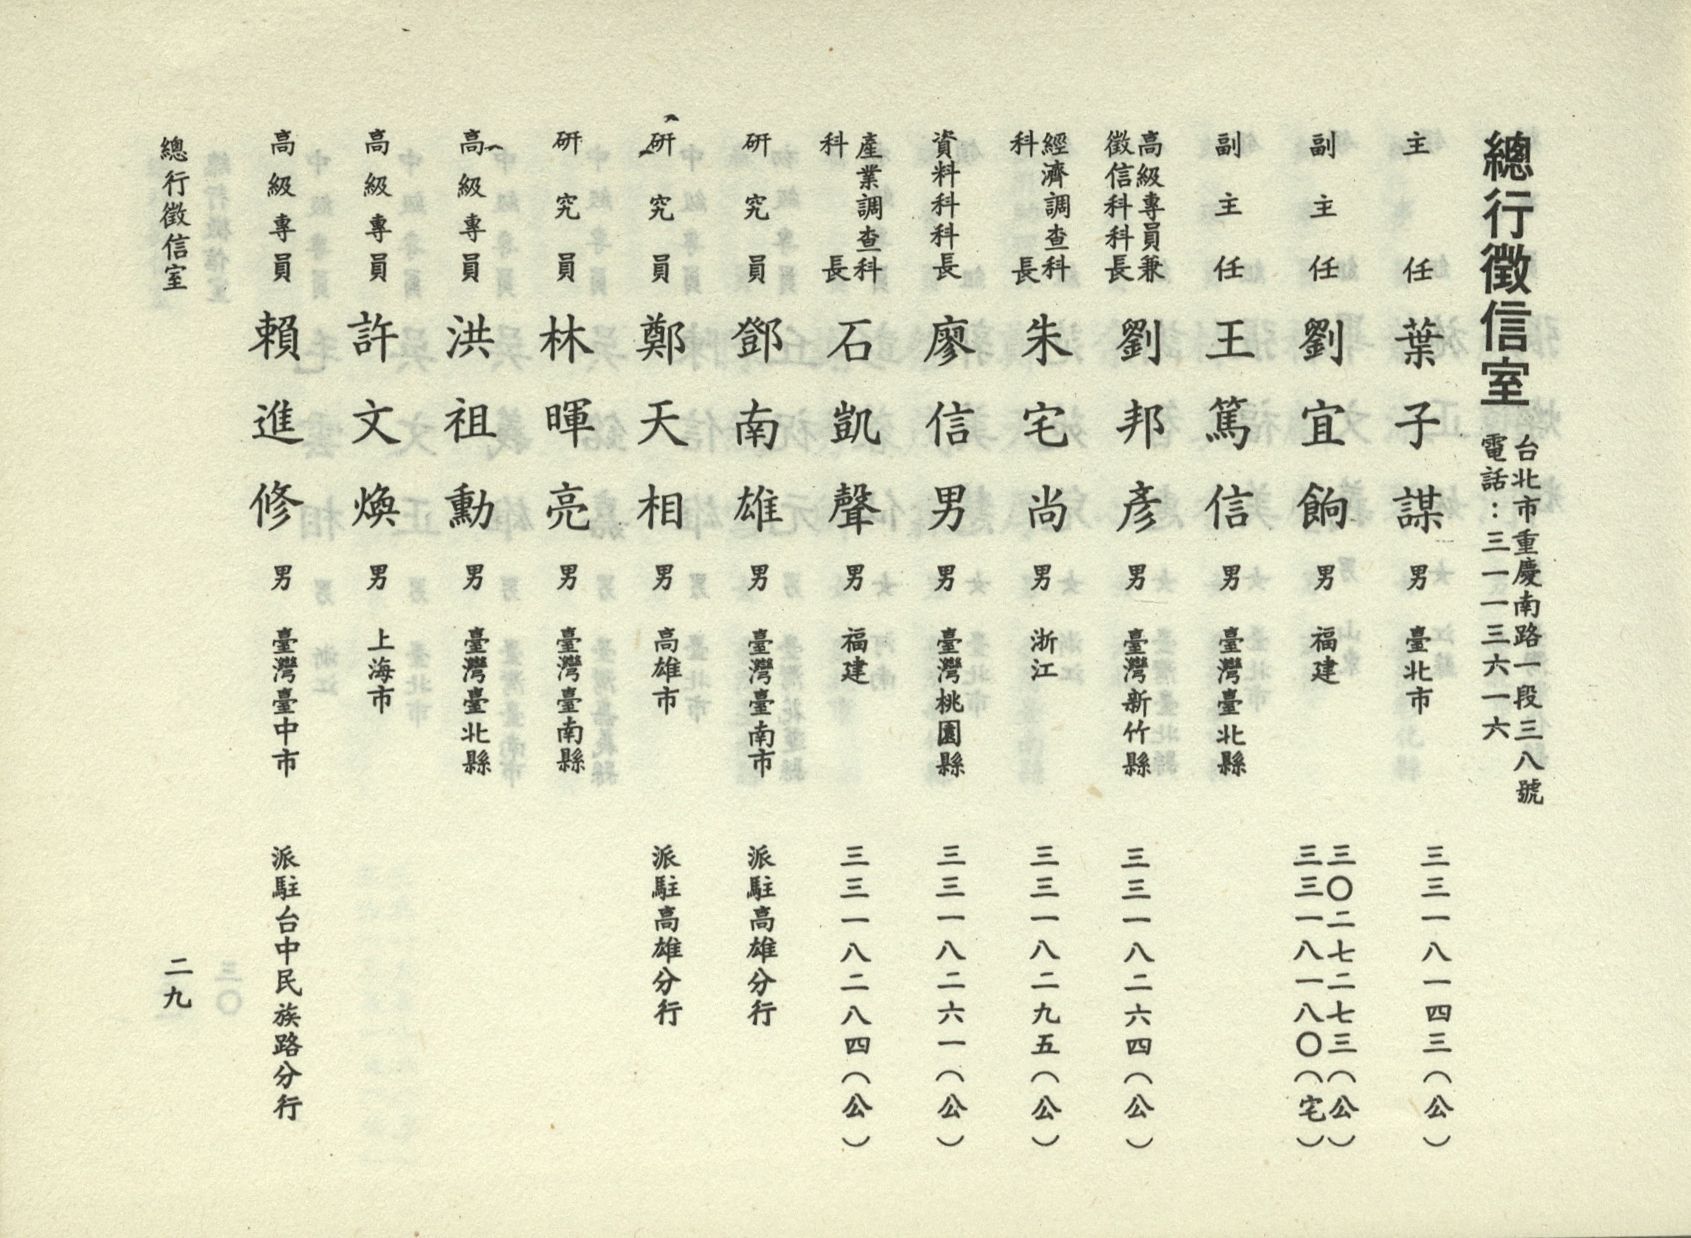 總行徵信室
台北市重慶南路一段三八號
電話：三一一三六一六
主任 葉子謀 男 臺北市 三三一八一四三（公）
副主任 劉宜餉 男 福建 三〇二七二七三（公）
三三一八一八〇（宅）
副主任 王篤信 男 臺灣臺北縣
高級專員兼
徵信科科長 劉邦彥 男 臺灣新竹縣 三三一八二六四（公）
經濟調查科
科長 朱宅尚 男 浙江 三三一八二九五（公）
資料科科長 廖信男 男 臺灣桃園縣 三三一八二六一（公）
產業調查科
科長 石凱聲 男 福建 三三一八二八四（公）
研究員 鄧南雄 男 臺灣臺南市 派駐高雄分行
研究員 鄭天相 男 高雄市 派駐高雄分行
研究員 林暉亮 男 臺灣臺南縣
高級專員 洪祖勳 男 臺灣臺北縣
高級專員 許文煥 男 上海市
高級專員 賴進修 男 臺灣臺中市 派駐台中民族路分行
總行徵信室 二九